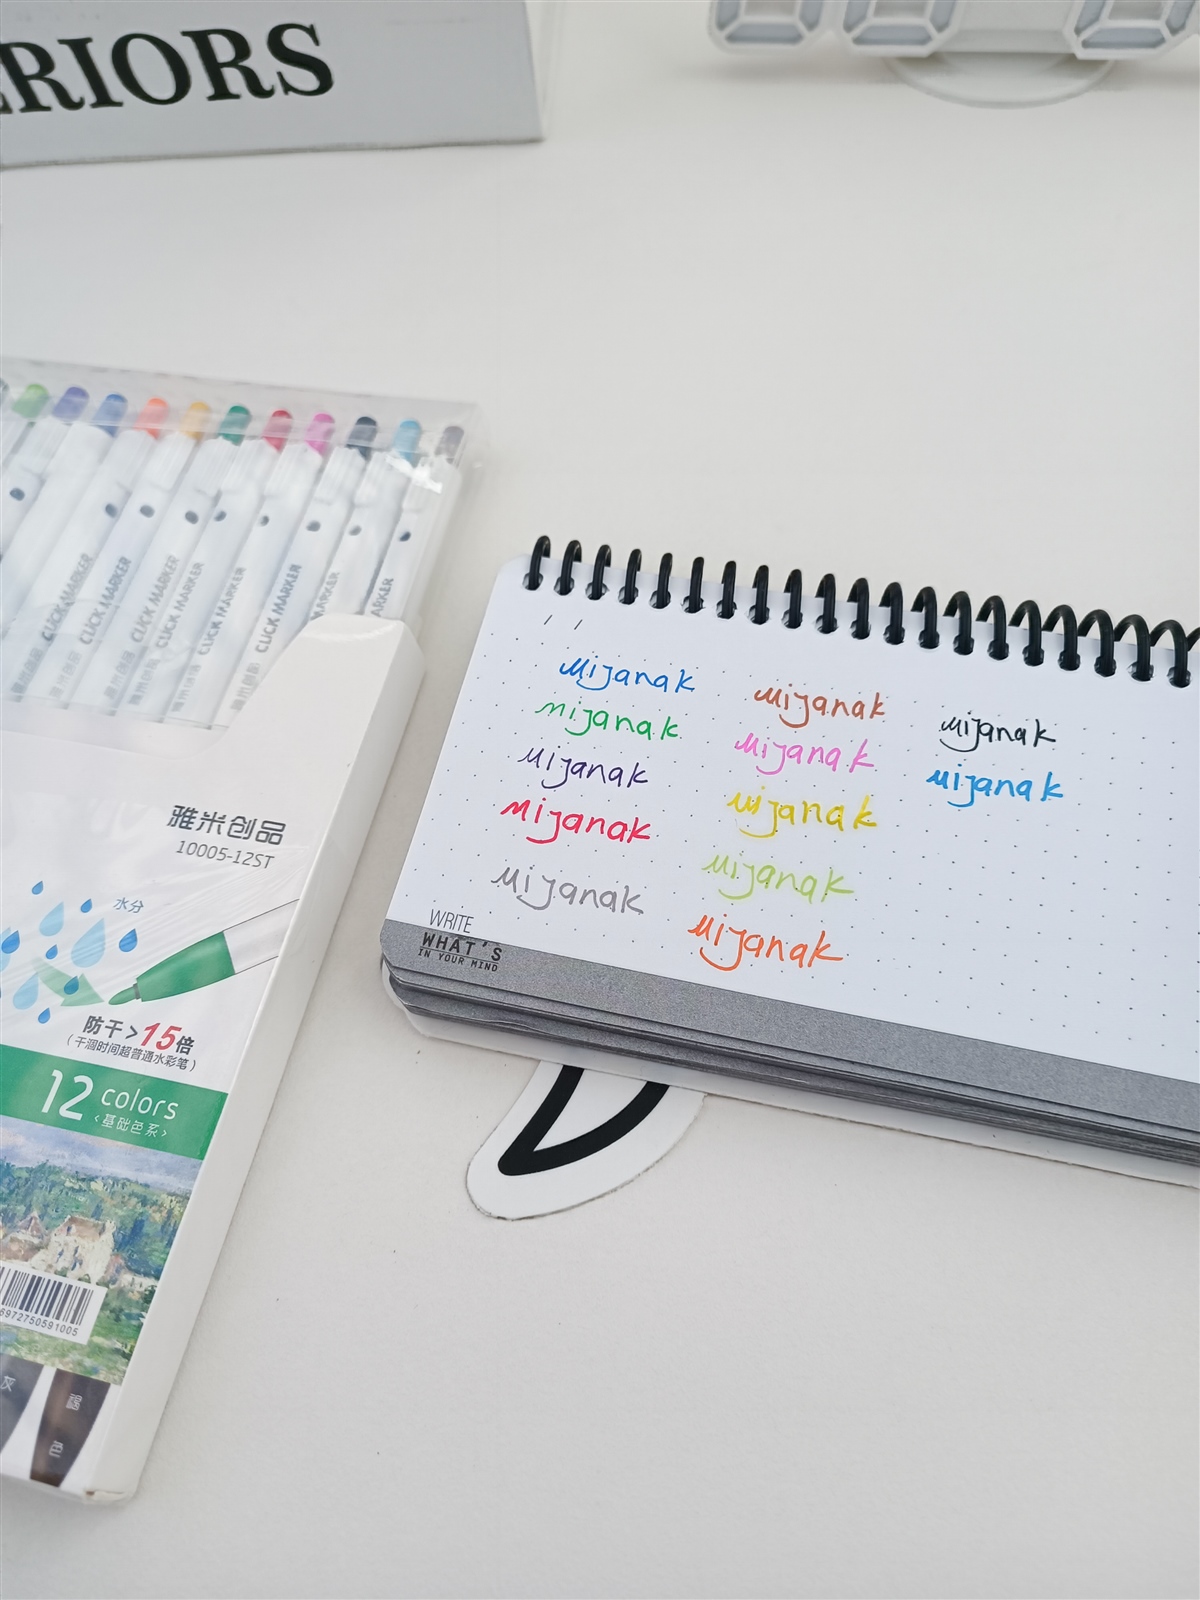 ERIORS
CLICK MARKER
CLICK MARKER
CLICK MARKER
CLICK MARKER
CLICK MARKER
CLICK MARKER
MARKER
MARKER
雅米创品
10005-12ST
水分
防干>15倍
(干涸时间超普通水彩笔)
12 colors
<基础色系>
6972750591005
灰
色
mijanak
mijanak
mijanak
mijanak
mijanak
mijanak
mijanak
mijanak
mijanak
mijanak
mijanak
mijanak
WRITE
WHAT'S
IN YOUR MIND